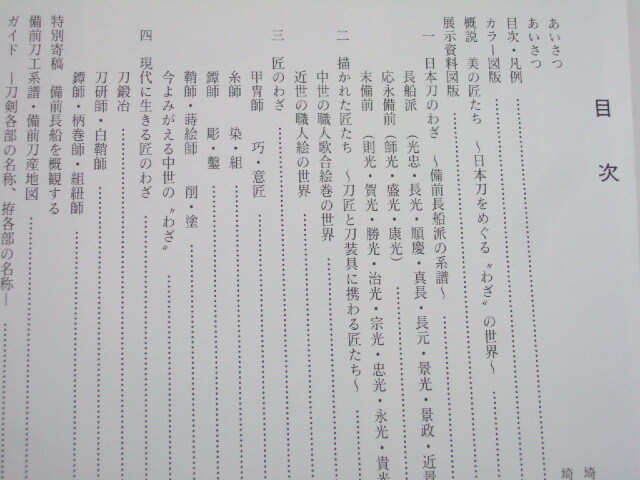 目次
あいさつ
あいさつ
目次・凡例
カラー図版
概説 美の匠たち ～日本刀をめぐる〝わざ〟の世界～
展示資料図版
一 日本刀のわざ ～備前長船派の系譜～
長船派 (光忠・長光・順慶・真長・長元・景光・景政・近景
応永備前 (師光・盛光・康光)
末備前 (則光・賀光・勝光・治光・宗光・忠光・永光・貴光
二 描かれた匠たち ～刀匠と刀装具に携わる匠たち～
中世の職人歌合絵巻の世界
近世の職人絵の世界
三 匠のわざ
甲冑師 巧・意匠
糸師 染・組
鐔師 彫・鑿
鞘師・蒔絵師 削・塗
今よみがえる中世の〝わざ〟
四 現代に生きる匠のわざ
刀鍛冶
刀研師・白鞘師
鐔師・柄巻師・組紐師
特別寄稿 備前長船を概観する
備前刀工系譜・備前刀産地図
ガイド ―刀剣各部の名称、拵各部の名称―
埼
埼